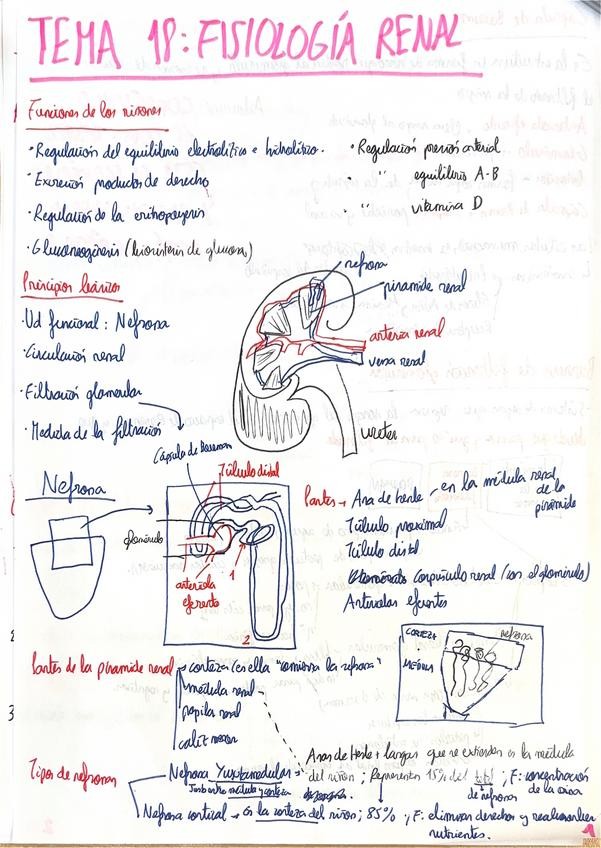 TEMA 18: FISIOLOGÍA RENAL
Funciones de los riñones
· Regulación del equilibrio electrolítico e hidrolítico.
· Excreción productos de derecho
· Regulación de la eritropoyesis
· Gluconeogénesis (biosíntesis de glucosa)
· Regulación presión arterial
· " equilibrio A-B
· " vitamina D
Principios básicos
· Ud funcional: Nefrona
· Circulación renal
· Filtración glomerular
· Medida de la filtración
nefrona
pirámide renal
arteria renal
vena renal
uréter
Nefrona
Cápsula de Bowman
Túbulo distal
glomérulo
arteriola
eferente
1
2
Partes → Asa de henle - en la médula renal
de la
pirámide
Túbulo proximal
Túbulo distal
corpúsculo renal (con el glomérulo)
Arteriolas eferentes
CORTEZA
nefrona
MÉDULA
Partes de la pirámide renal → corteza con ella "comienza la nefrona"
médula renal
papila renal
caliz menor
Tipos de nefronas
Nefrona Yuxtamedular
Junto entre médula y corteza
Asas de Henle + largas que se extienden en la médula
del riñón; Representan 15% del total; F: concentración
de nefronas
de la orina
Nefrona cortical → En la corteza del riñón; 85%, F: eliminar derechos y
nutrientes.
1